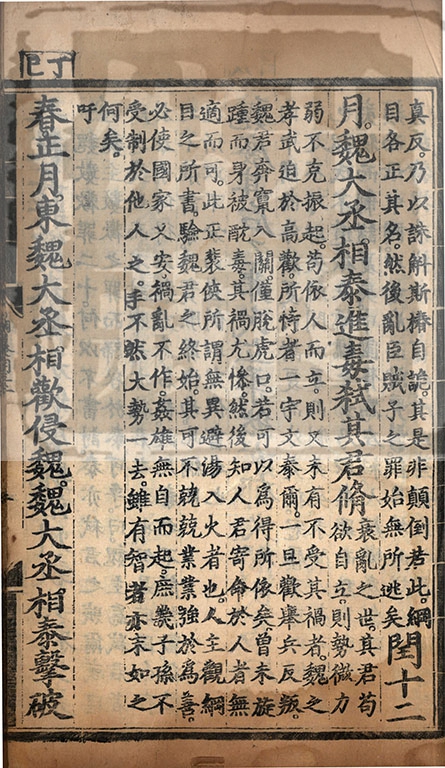 真反。乃以誅斛斯椿自詭。其是非顛倒若此。綱
目各正其名。然後亂臣賊子之罪始無所逃矣
閏十二
月。魏大丞相泰進毒弒其君脩
衰亂之世。其君苟
欲自立。則勢微力
弱不克振起。苟依人而立。則又未有不受其禍者。魏之
孝武迫於高歡。所恃者一宇文泰爾。一旦歡舉兵反叛。
魏君奔竄入關。僅脫虎口。若可以爲得所依矣。曾未旋
踵而身被酖毒。其禍尤慘。然後知人君寄命於人者。無
適而可。此正裴俠所謂無異避湯入火者也。人主觀綱
目之所書。驗魏君之終始。其可不兢兢業業。強於爲善。
必使國家乂安。禍亂不作。姦雄無自而起。庶幾子孫不
受制於他人之手。不然大勢一去。雖有智者。亦末如之
何矣。
吁
丁巳
春正月。東魏大丞相歡侵魏。魏大丞相泰擊破